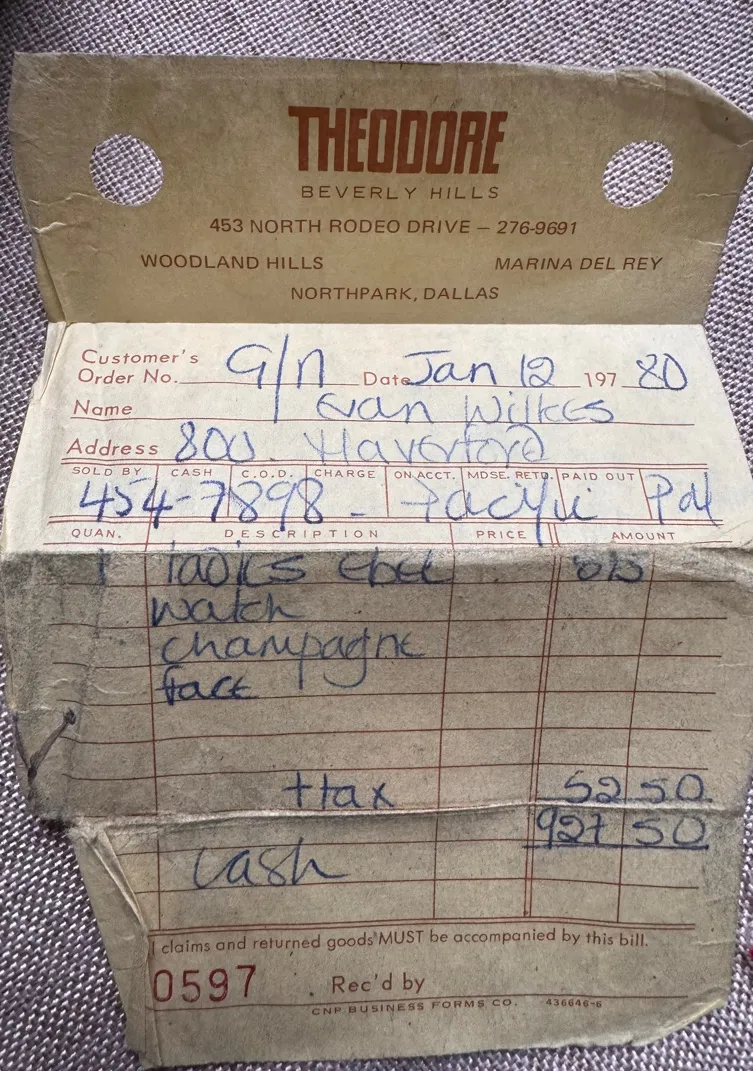 THEODORE
BEVERLY HILLS
453 NORTH RODEO DRIVE – 276-9691
WOODLAND HILLS MARINA DEL REY
NORTHPARK, DALLAS
Customer's
Order No. G/n Date Jan 12 197 80
Name Evan Wilkes
Address 800. Haverford
SOLD BY CASH C.O.D. CHARGE ON ACCT. MDSE. RETD. PAID OUT
454-7898 - Pacific Pal
QUAN. DESCRIPTION PRICE AMOUNT
1 ladies ebel
watch
champagne
face
+tax 52 50
927 50
Cash
l claims and returned goods MUST be accompanied by this bill.
0597 Rec'd by
CNP BUSINESS FORMS CO. 436646-6